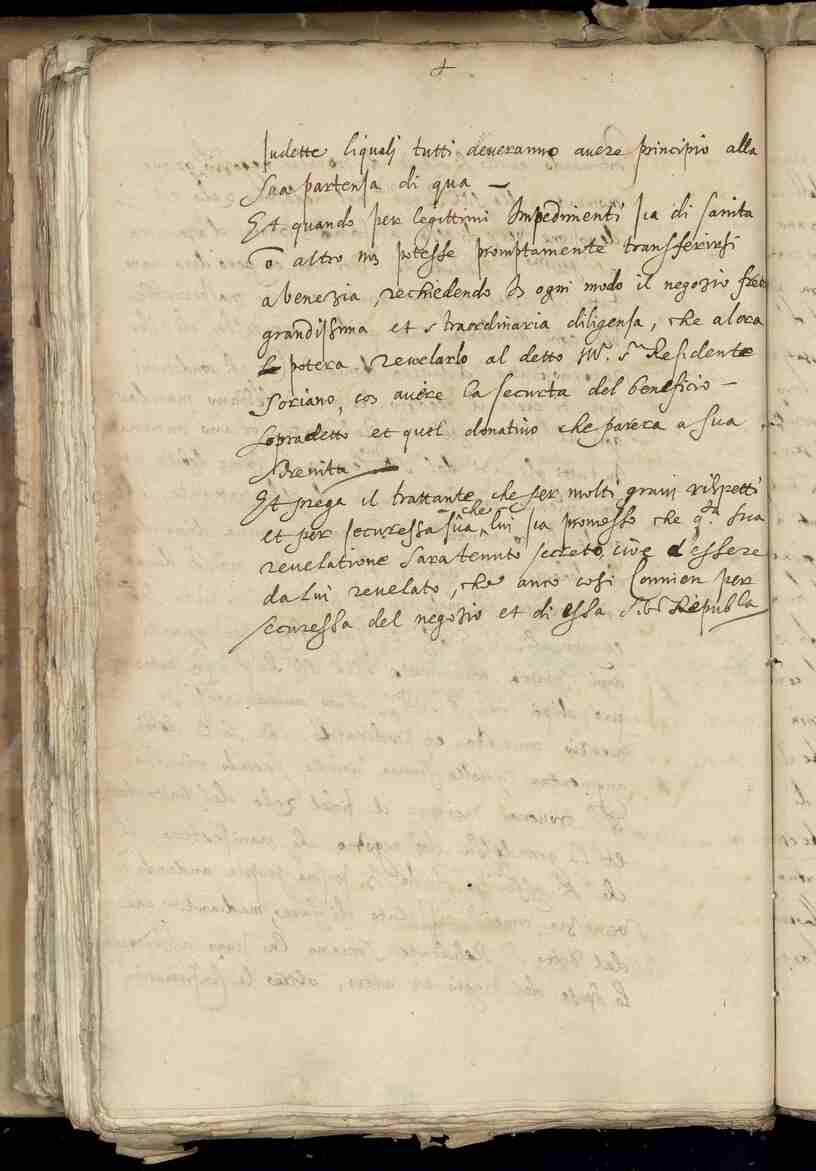 sudette liquali tutti deveranno avere principio alla
sua partensa di qua —
Et quando per legittimi Impedimenti sia di sanita
o altro non potesse promptamente transferirsi
a Venezia, rechiedendo in ogni modo il negozio
grandissima et straordinaria diligensa, che alora
potera revelarlo al detto Ill. Sr Residente
Soriano, con avere la securta del beneficio —
sopradetto et quel donativo che parera a sua
Serenita
Et prega il trattante che per molti gravi rispetti
et per securessa sua che lui sia promesso che qta sua
revelatione sara tenuto secreto, cioe d'essere
da lui revelato, che anco cosi Convien per
securessa del negozio et di essa Republa